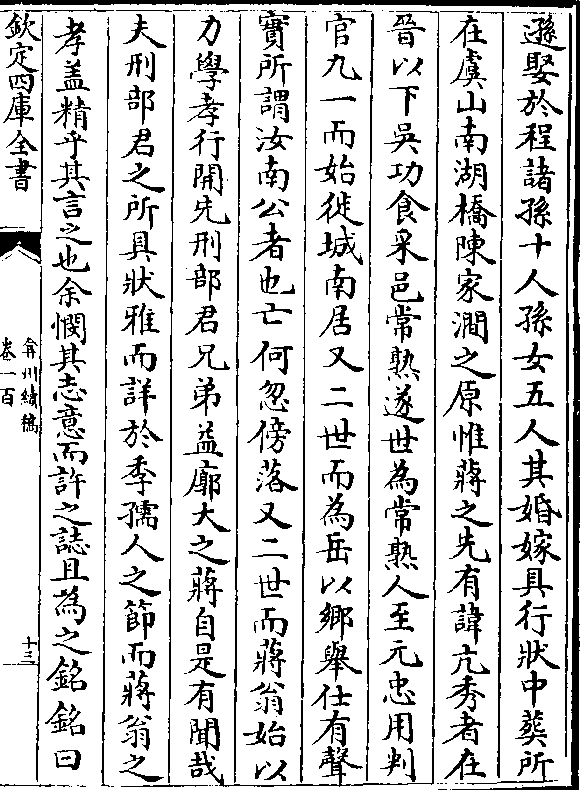 遜娶於程諸孫十人孫女五人其婚嫁具行狀中葬所
在虞山南湖橋陳家澗之原惟蔣之先有諱亢秀者在
晉以下吳功食采邑常熟遂世為常熟人至元忠用判
官九一而始徙城南居又二世而為岳以鄉舉仕有聲
實所謂汝南公者也亡何忽傍落又二世而蔣翁始以
力學孝行開先刑部君兄弟益廓大之蔣自是有聞哉
夫刑部君之所具狀雅而詳於季孺人之節而蔣翁之
孝盖精乎其言之也余憫其志意而許之誌且為之銘銘曰
欽定四庫全書
弇州續稿
卷一百
十三